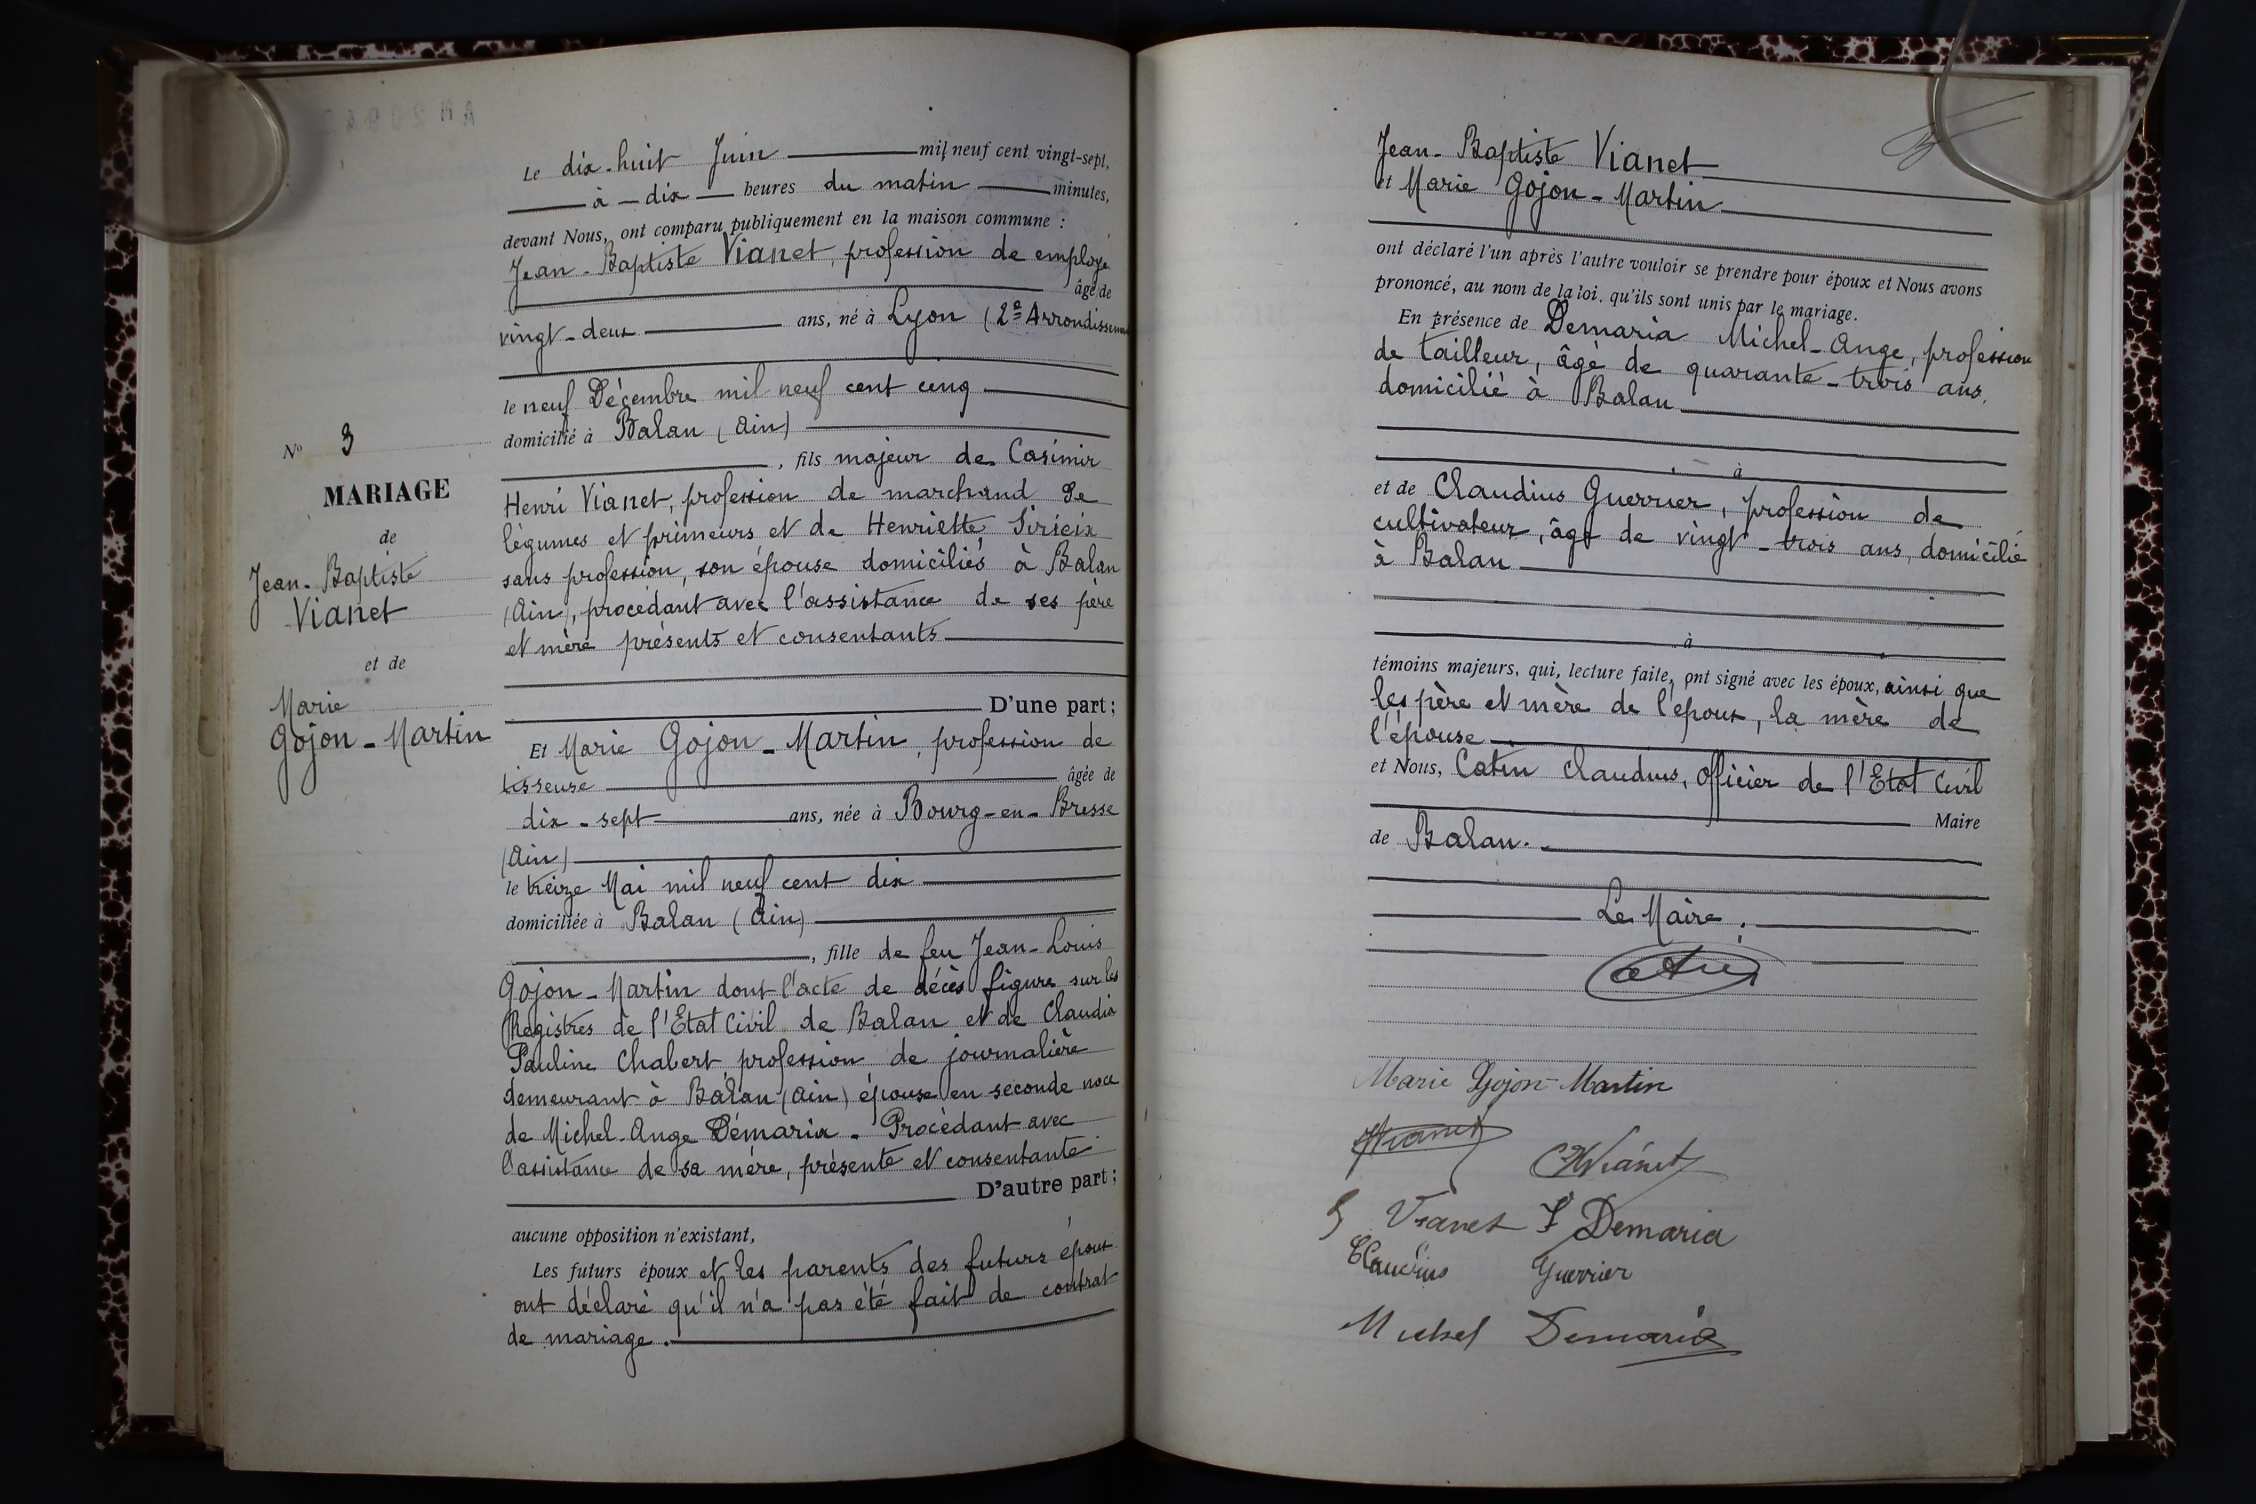 Le dix-huit Juin mil neuf cent vingt-sept,
à dix heures du matin minutes,
devant Nous, ont comparu publiquement en la maison commune :
Jean-Baptiste Vianet, profession de employé
âgé de
vingt-deux ans, né à Lyon (2e Arrondissement
le neuf Décembre mil neuf cent cinq
domicilié à Balan (Ain)
, fils majeur de Casimir
Henri Vianet, profession de marchand de
légumes et primeurs et de Henriette Sirieix
sans profession, son épouse domiciliés à Balan
(Ain), procédant avec l'assistance de ses père
et mère présents et consentants
D'une part ;
Nº 3
MARIAGE
de
Jean-Baptiste
Vianet
et de
Marie
Gojon-Martin
Et Marie Gojon-Martin, profession de
tisseuse âgée de
dix-sept ans, née à Bourg-en-Bresse
(Ain)
le treize Mai mil neuf cent dix
domiciliée à Balan (Ain)
, fille de feu Jean-Louis
Gojon-Martin dont l'acte de décès figure sur les
Registres de l'Etat Civil de Balan et de Claudia
Pauline Chabert profession de journalière
demeurant à Balan (Ain) épouse en seconde noce
de Michel-Ange Démaria. Procédant avec
l'assistance de sa mère, présente et consentante
D'autre part ;
aucune opposition n'existant,
Les futurs époux et les parents des futurs époux
ont déclaré qu'il n'a pas été fait de contrat
de mariage.
Jean-Baptiste Vianet
et Marie Gojon-Martin
ont déclaré l'un après l'autre vouloir se prendre pour époux et Nous avons
prononcé, au nom de la loi, qu'ils sont unis par le mariage.
En présence de Demaria Michel-Ange, profession
de tailleur, âgé de quarante-trois ans,
domicilié à Balan
à
et de Claudius Guerrier, profession de
cultivateur, âgé de vingt-trois ans, domicilié
à Balan
à
témoins majeurs, qui, lecture faite, ont signé avec les époux, ainsi que
les père et mère de l'époux, la mère de
l'épouse
et Nous, Catin Claudius, officier de l'Etat Civil
Maire
de Balan.
Le Maire :
Marie Gojon-Martin
Vianet
CH Vianet
Vianet Demaria
Claudius Guerrier
Michel Demaria